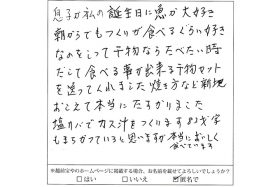 息子が私の誕生日に魚が大好き
朝からでもつくりが食べるぐらい好き
なのをしって干物ならたべたい時
だして食べる事が出来る干物セット
を送ってくれました 焼き方など新聞
おこえて本当にたすかりました
塩リバでカス汁をつくります 82才字
もまちがっていると思いますが本当においしく
食べています
※越前宝やのホームページに掲載する場合、お名前を載せてよろしいでしょうか?
□はい □いいえ ☑匿名で